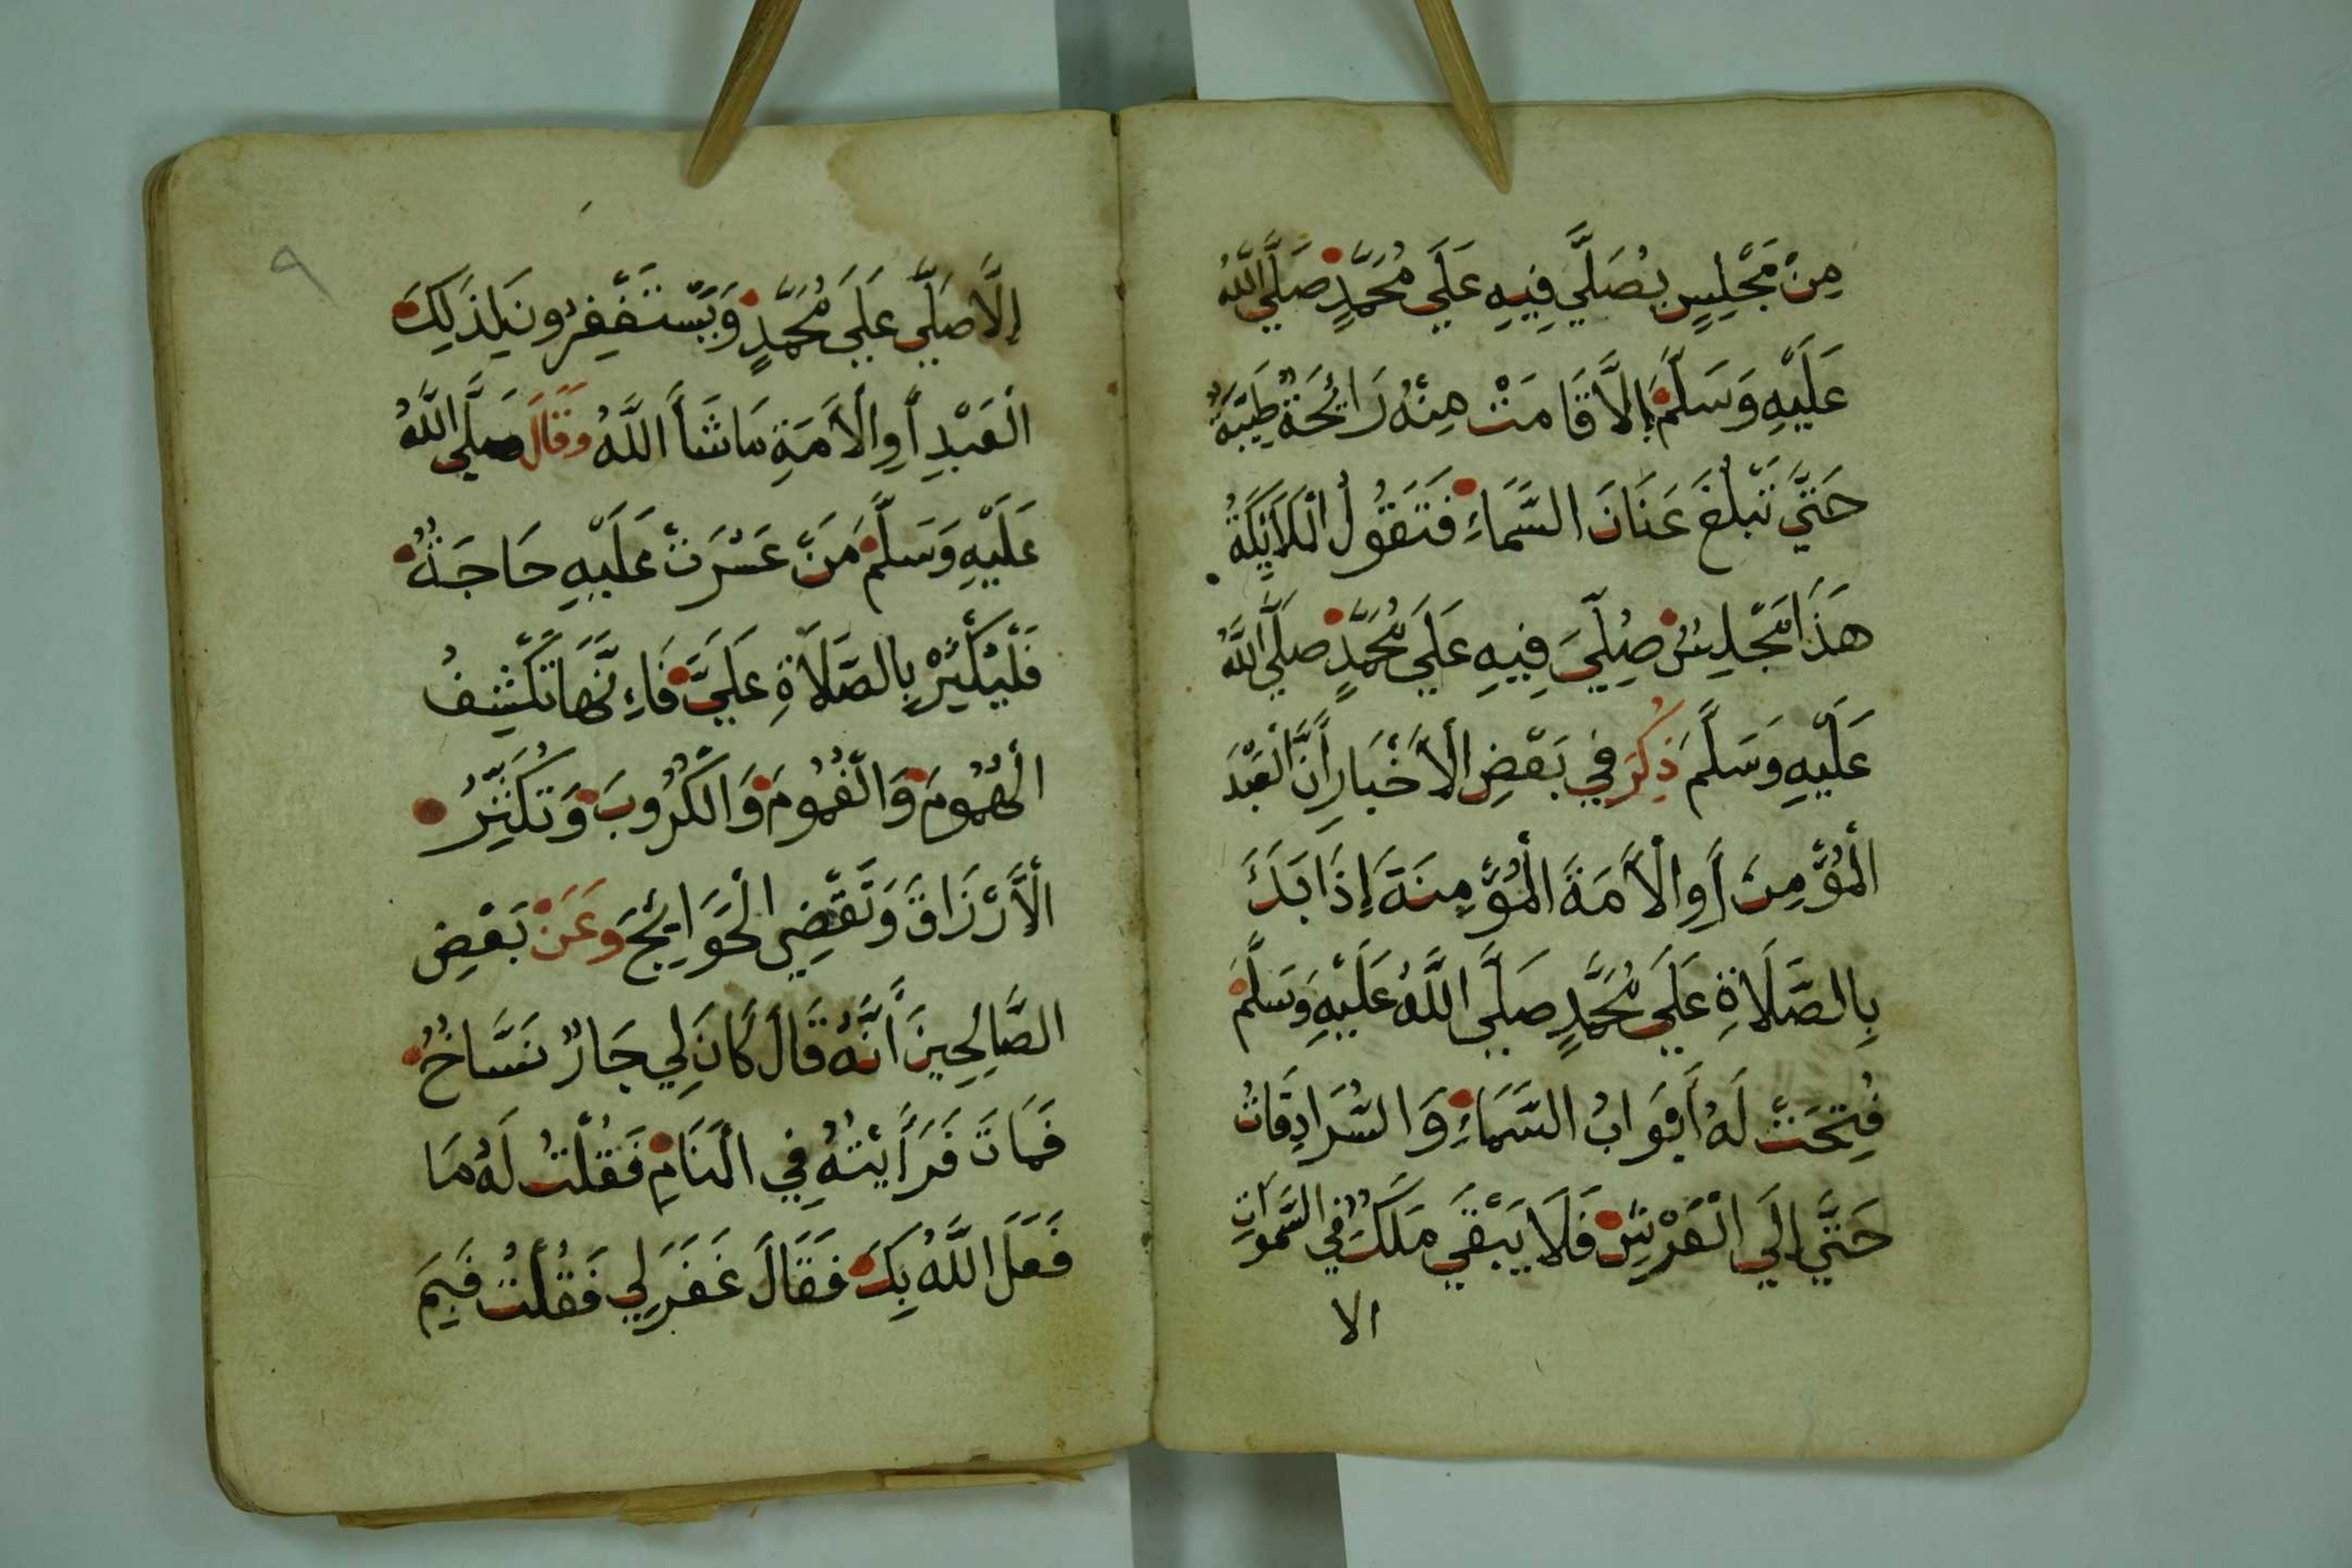 مِنْ مَجْلِسٍ يُصَلَّي فِيهِ عَلَي مُحَمَّدٍ صَلَّي اللَّهُ
عَلَيْهِ وَسَلَّمَ إِلَّا قَامَتْ مِنْهُ رَائِحَةٌ طَيِّبَةٌ
حَتَّي تَبْلُغَ عَنَانَ السَّمَاءِ فَتَقُولُ الْمَلَائِكَةُ
هَذَا مَجْلِسٌ صُلِّيَ فِيهِ عَلَي مُحَمَّدٍ صَلَّي اللَّهُ
عَلَيْهِ وَسَلَّمَ ذُكِرَ فِي بَعْضِ الْأَخْبَارِ أَنَّ الْعَبْدَ
الْمُؤْمِنَ أَوِ الْأَمَةَ الْمُؤْمِنَةَ إِذَا بَدَأَ
بِالصَّلَاةِ عَلَي مُحَمَّدٍ صَلَّي اللَّهُ عَلَيْهِ وَسَلَّمَ
فُتِحَتْ لَهُ أَبْوَابُ السَّمَاءِ وَالسُّرَادِقَاتُ
حَتَّي إِلَي الْعَرْشِ فَلَا يَبْقَي مَلَكٌ فِي السَّمَوَاتِ
الا
٩
إِلَّا صَلَّي عَلَي مُحَمَّدٍ وَيَسْتَغْفِرُونَ لِذَلِكَ
الْعَبْدِ أَوِ الْأَمَةِ مَا شَأَ اللَّهُ وَقَالَ صَلَّي اللَّهُ
عَلَيْهِ وَسَلَّمَ مَنْ عَسُرَتْ عَلَيْهِ حَاجَةٌ
فَلْيُكْثِرْ بِالصَّلَاةِ عَلَيَّ فَإِنَّهَا تَكْشِفُ
الْهُمُومَ وَالْغُمُومَ وَالْكُرُوبَ وَتُكَثِّرُ
الْأَرْزَاقَ وَتَقْضِي الْحَوَايِجَ وَعَنْ بَعْضِ
الصَّالِحِينَ أَنَّهُ قَالَ كَانَ لِي جَارٌ نَسَّاخٌ
فَمَاتَ فَرَأَيْتُهُ فِي الْمَنَامِ فَقُلْتُ لَهُ مَا
فَعَلَ اللَّهُ بِكَ فَقَالَ غَفَرَ لِي فَقُلْتُ فَبِمَ